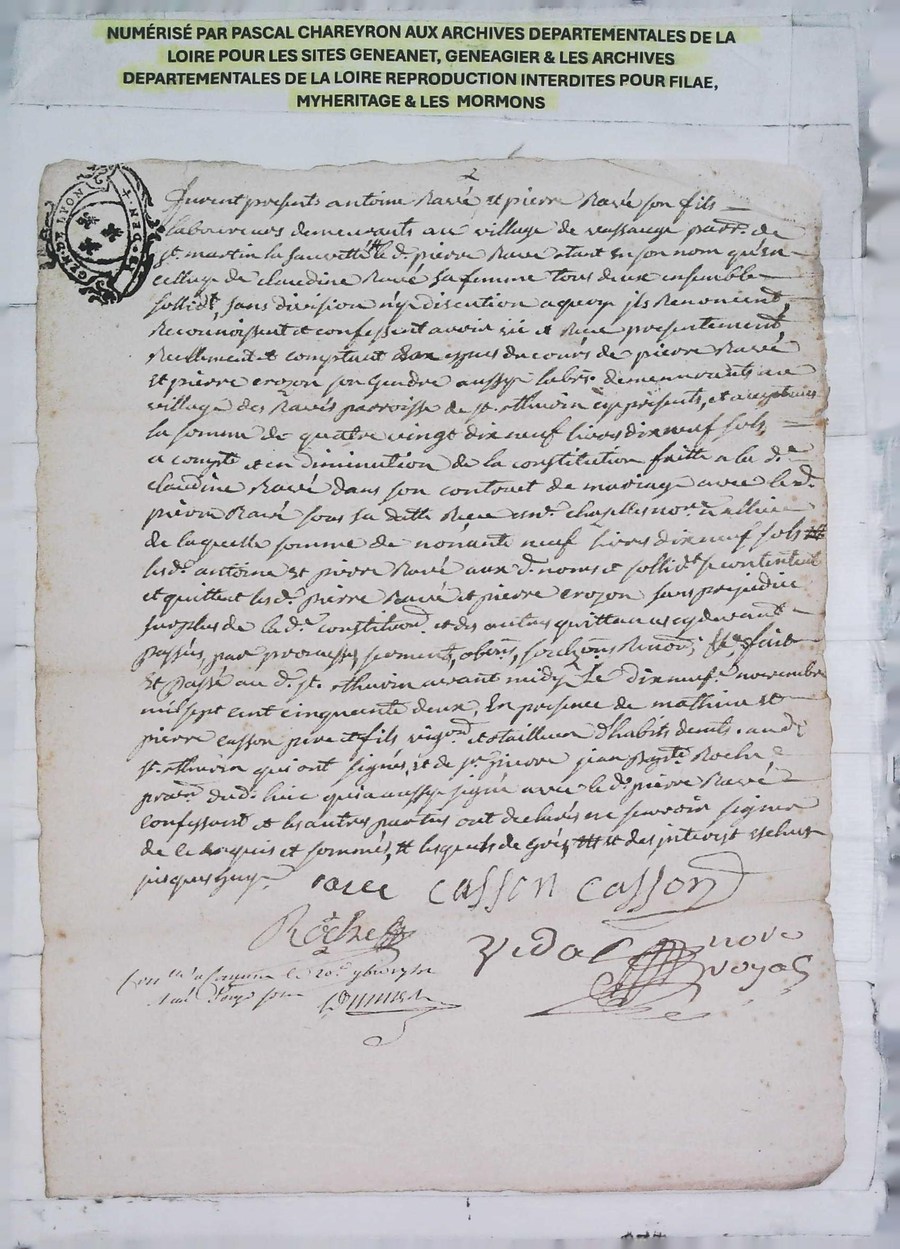 NUMÉRISÉ PAR PASCAL CHAREYRON AUX ARCHIVES DEPARTEMENTALES DE LA
LOIRE POUR LES SITES GENEANET, GENEAGIER & LES ARCHIVES
DEPARTEMENTALES DE LA LOIRE REPRODUCTION INTERDITES POUR FILAE,
MYHERITAGE & LES MORMONS
GEN.DE LYON
2
furent presents antoine Ravé et pierre Ravé son fils
laboureurs demeurants au village de parr. de
st. martin la sauveté le d. pierre Ravé étant en son nom qu'en
celluy de claudine Ravé sa femme tous deux ensemble
sollidt. sans division n'y discution a quoy ils Renoncent,
Reconnoissent et confessent avoir et Reçu presentement,
Reellement et comptant de pierre Ravé
et pierre crozon son Gendre aussy labrs. demeurants au
village des Ravés parroisse de st. thurin cy presents, et acceptants
la somme de quatre vingt dix neuf livres dix neuf sols,
a compte et en diminution de la constitution faitte a la de.
claudine Ravé dans son contract de mariage avec le d.
pierre Ravé sous sa datte Reçu me. nore.
de laquelle somme de nonante neuf livres dix neuf sols
les d. antoine et pierre Ravé aux d. noms et sollidt. se contentent
et quittent les d. pierre Ravé et pierre crozon sans prejudice
surplus de la de. constitüon. et des autres quittances cy devant
passés, par promesses, serment, obons., Renons; fait
et passé au d. st. thurin avant midy le dix neuf. novembre
mil sept cent cinquante deux, En presence de mathieu et
pierre casson pere et fils vigon. et tailleur d'habits dud.
st. thurin qui ont signés, et de sr. jean Bapte. Roche
pratn. dud. lieu qui a aussy signé avec le d. pierre Ravé
confessant et les autres parties ont declarés ne sçavoir signer
de ce enquis et sommés, et des interest echus
jusques huy.
ravé casson casson
Roche
Vidal nore
royal
le 20e. 9bre 1752